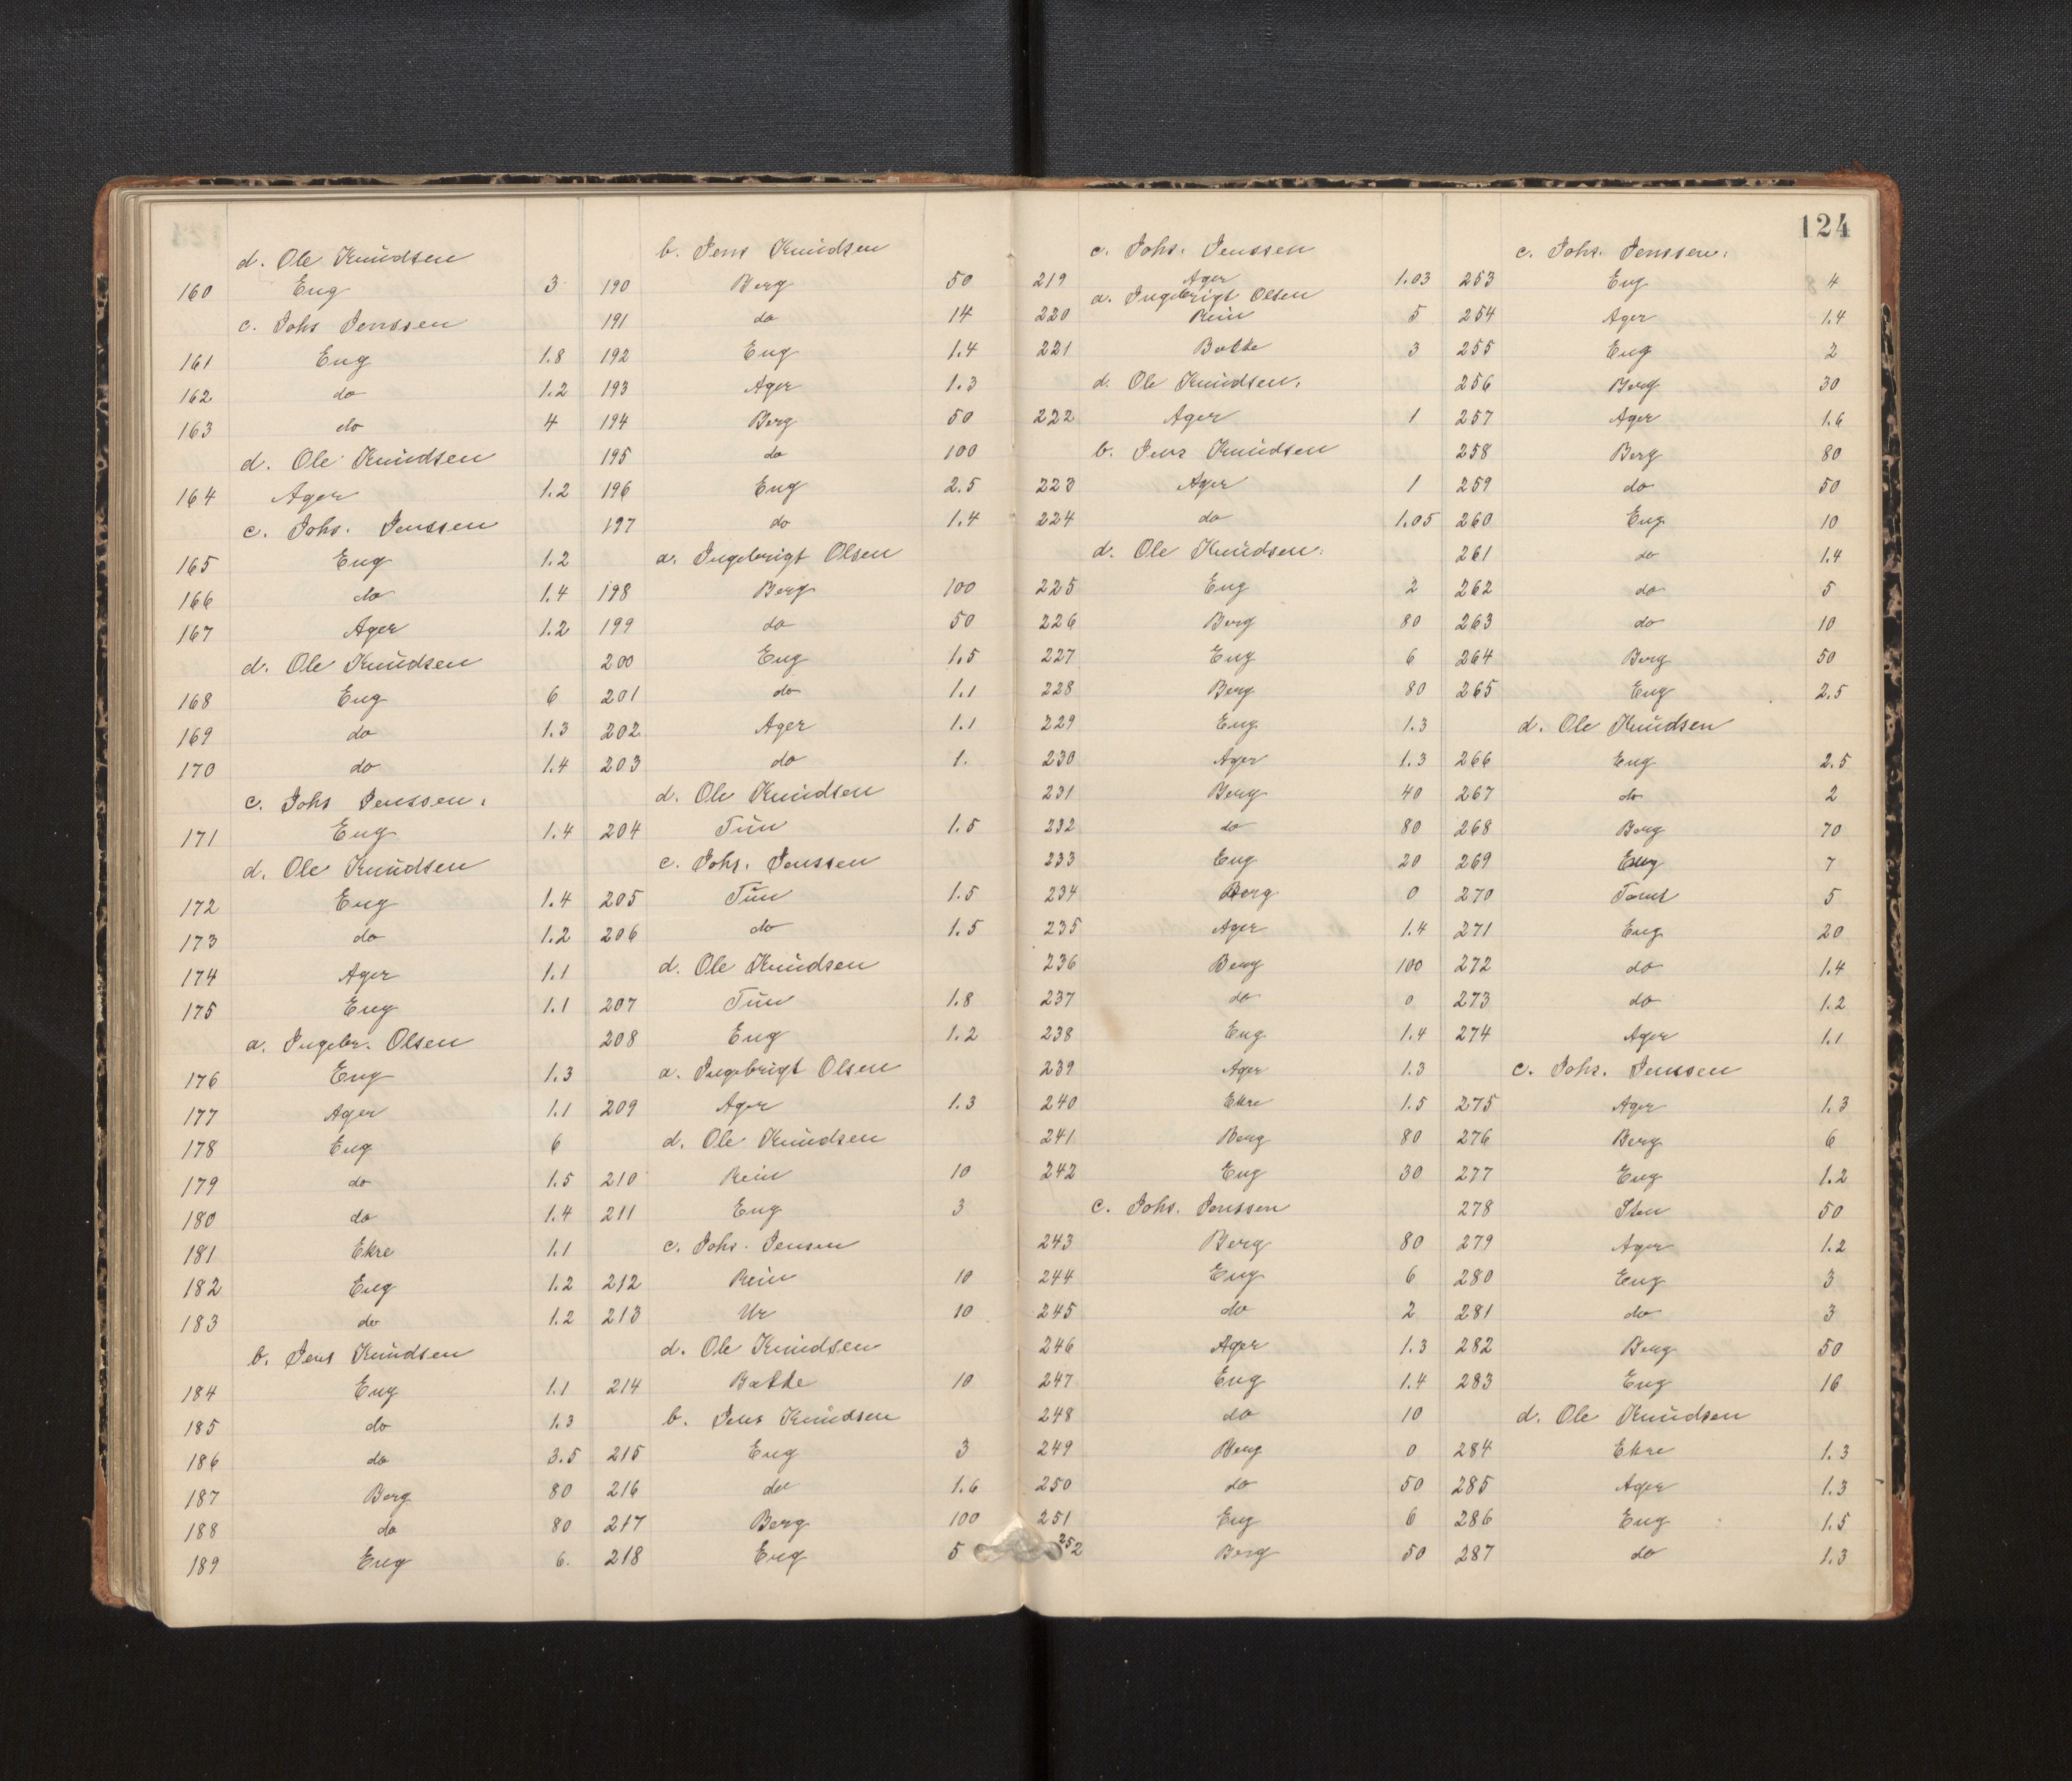 124
d. Ole Knudsen
160 Eng 3
c. Johs Jenssen
161 Eng 1.8
162 do 1.2
163 do 4
d. Ole Knudsen
164 Ager 1.2
c. Johs. Jenssen
165 Eng 1.2
166 do 1.4
167 Ager 1.2
d. Ole Knudsen
168 Eng 6
169 do 1.3
170 do 1.4
c. Johs Jenssen.
171 Eng 1.4
d. Ole Knudsen
172 Eng 1.4
173 do 1.2
174 Ager 1.1
175 Eng 1.1
a. Ingebr. Olsen
176 Eng 1.3
177 Ager 1.1
178 Eng 6
179 do 1.5
180 do 1.4
181 Ekre 1.1
182 Eng 1.2
183 do 1.2
b. Jens Knudsen
184 Eng 1.1
185 do 1.3
186 do 3.5
187 Berg 80
188 do 80
189 Eng 6.
b. Jens Knudsen
190 Berg 50
191 do 14
192 Eng 1.4
193 Ager 1.3
194 Berg 50
195 do 100
196 Eng 2.5
197 do 1.4
a. Ingebrigt Olsen
198 Berg 100
199 do 50
200 Eng 1.5
201 do 1.1
202 Ager 1.1
203 do 1.
d. Ole Knudsen
204 Tun 1.5
c. Johs. Jenssen
205 Tun 1.5
206 do 1.5
d. Ole Knudsen
207 Tun 1.8
208 Eng 1.2
a. Ingebrigt Olsen
209 Ager 1.3
d. Ole Knudsen
210 Rein 10
211 Eng 3
c. Johs. Jensen
212 Rein 10
213 Ur 10
d. Ole Knudsen
214 Bakke 10
b. Jens Knudsen
215 Eng 3
216 do 1.6
217 Berg 100
218 Eng 5
c. Johs. Jenssen
219 Ager 1.03
a. Ingebrigt Olsen
220 Rein 5
221 Bakke 3
d. Ole Knudsen.
222 Ager 1
b. Jens Knudsen
223 Ager 1
224 do 1.05
d. Ole Knudsen.
225 Eng 2
226 Berg 80
227 Eng 6
228 Berg 80
229 Eng 1.3
230 Ager 1.3
231 Berg 40
232 do 80
233 Eng 20
234 Berg 0
235 Ager 1.4
236 Berg 100
237 do 0
238 Eng 1.4
239 Ager 1.3
240 Ekre 1.5
241 Berg 80
242 Eng 30
c. Johs. Jenssen
243 Berg 80
244 Eng 6
245 do 2
246 Ager 1.3
247 Eng 1.4
248 do 10
249 Berg 0
250 do 50
251 Eng 6
252 Berg 50
c. Johs. Jenssen.
253 Eng 4
254 Ager 1.4
255 Eng 2
256 Berg 30
257 Ager 1.6
258 Berg 80
259 do 50
260 Eng 10
261 do 1.4
262 do 5
263 do 10
264 Berg 50
265 Eng 2.5
d. Ole Knudsen
266 Eng 2.5
267 do 2
268 Berg 70
269 Eng 7
270 Tomt 5
271 Eng 20
272 do 1.4
273 do 1.2
274 Ager 1.1
c. Johs. Jenssen
275 Ager 1.3
276 Berg 6
277 Eng 1.2
278 Sten 50
279 Ager 1.2
280 Eng 3
281 do 3
282 Berg 50
283 Eng 16
d. Ole Knudsen
284 Ekre 1.3
285 Ager 1.3
286 Eng 1.5
287 do 1.3